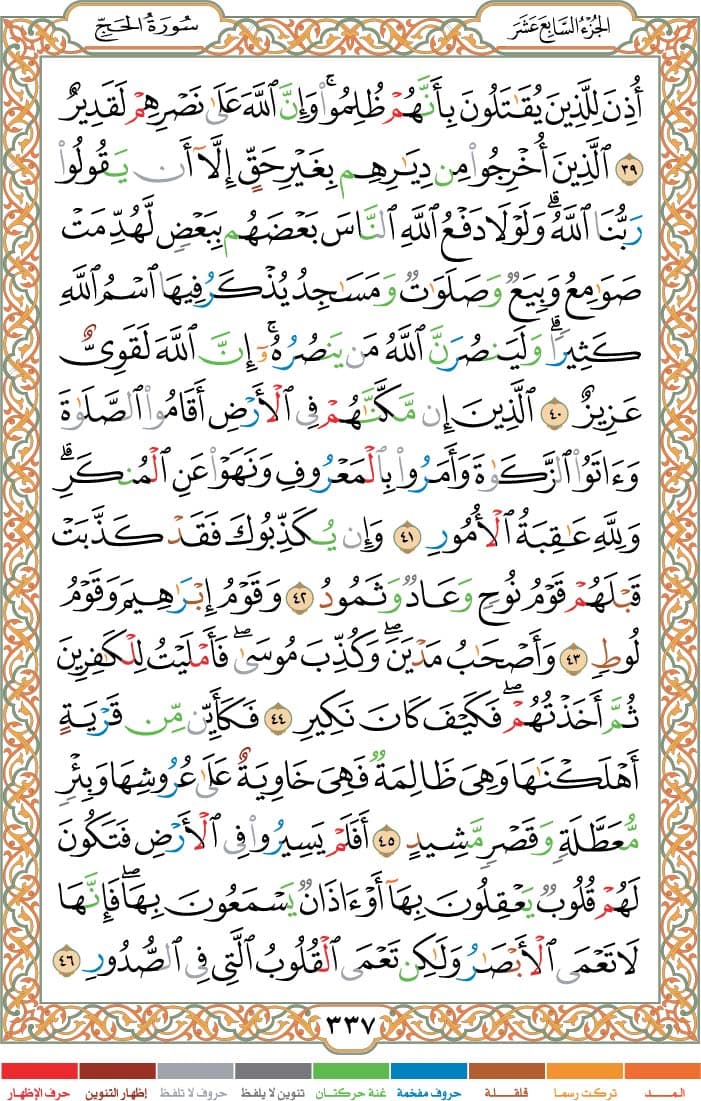 الجزء السابع عشر
سورة الحج
أُذِنَ لِلَّذِينَ يُقَٰتَلُونَ بِأَنَّهُمْ ظُلِمُوا۟ ۚ وَإِنَّ ٱللَّهَ عَلَىٰ نَصْرِهِمْ لَقَدِيرٌ
٣٩ ٱلَّذِينَ أُخْرِجُوا۟ مِن دِيَٰرِهِم بِغَيْرِ حَقٍّ إِلَّآ أَن يَقُولُوا۟
رَبُّنَا ٱللَّهُ ۗ وَلَوْلَا دَفْعُ ٱللَّهِ ٱلنَّاسَ بَعْضَهُم بِبَعْضٍ لَّهُدِّمَتْ
صَوَٰمِعُ وَبِيَعٌ وَصَلَوَٰتٌ وَمَسَٰجِدُ يُذْكَرُ فِيهَا ٱسْمُ ٱللَّهِ
كَثِيرًا ۗ وَلَيَنصُرَنَّ ٱللَّهُ مَن يَنصُرُهُۥٓ ۚ إِنَّ ٱللَّهَ لَقَوِىٌّ
عَزِيزٌ ٤٠ ٱلَّذِينَ إِن مَّكَّنَّٰهُمْ فِى ٱلْأَرْضِ أَقَامُوا۟ ٱلصَّلَوٰةَ
وَءَاتَوُا۟ ٱلزَّكَوٰةَ وَأَمَرُوا۟ بِٱلْمَعْرُوفِ وَنَهَوْا۟ عَنِ ٱلْمُنكَرِ ۗ
وَلِلَّهِ عَٰقِبَةُ ٱلْأُمُورِ ٤١ وَإِن يُكَذِّبُوكَ فَقَدْ كَذَّبَتْ
قَبْلَهُمْ قَوْمُ نُوحٍ وَعَادٌ وَثَمُودُ ٤٢ وَقَوْمُ إِبْرَٰهِيمَ وَقَوْمُ
لُوطٍ ٤٣ وَأَصْحَٰبُ مَدْيَنَ ۖ وَكُذِّبَ مُوسَىٰ ۖ فَأَمْلَيْتُ لِلْكَٰفِرِينَ
ثُمَّ أَخَذْتُهُمْ ۖ فَكَيْفَ كَانَ نَكِيرِ ٤٤ فَكَأَيِّن مِّن قَرْيَةٍ
أَهْلَكْنَٰهَا وَهِىَ ظَالِمَةٌ فَهِىَ خَاوِيَةٌ عَلَىٰ عُرُوشِهَا وَبِئْرٍ
مُّعَطَّلَةٍ وَقَصْرٍ مَّشِيدٍ ٤٥ أَفَلَمْ يَسِيرُوا۟ فِى ٱلْأَرْضِ فَتَكُونَ
لَهُمْ قُلُوبٌ يَعْقِلُونَ بِهَآ أَوْ ءَاذَانٌ يَسْمَعُونَ بِهَا ۖ فَإِنَّهَا
لَا تَعْمَى ٱلْأَبْصَٰرُ وَلَٰكِن تَعْمَى ٱلْقُلُوبُ ٱلَّتِى فِى ٱلصُّدُورِ ٤٦
٣٣٧
المــد تركت رسما قلقلة حروف مفخمة غنة حركتان تنوين لا يلفظ حروف لا تلفظ إظهار التنوين حرف الإظهار